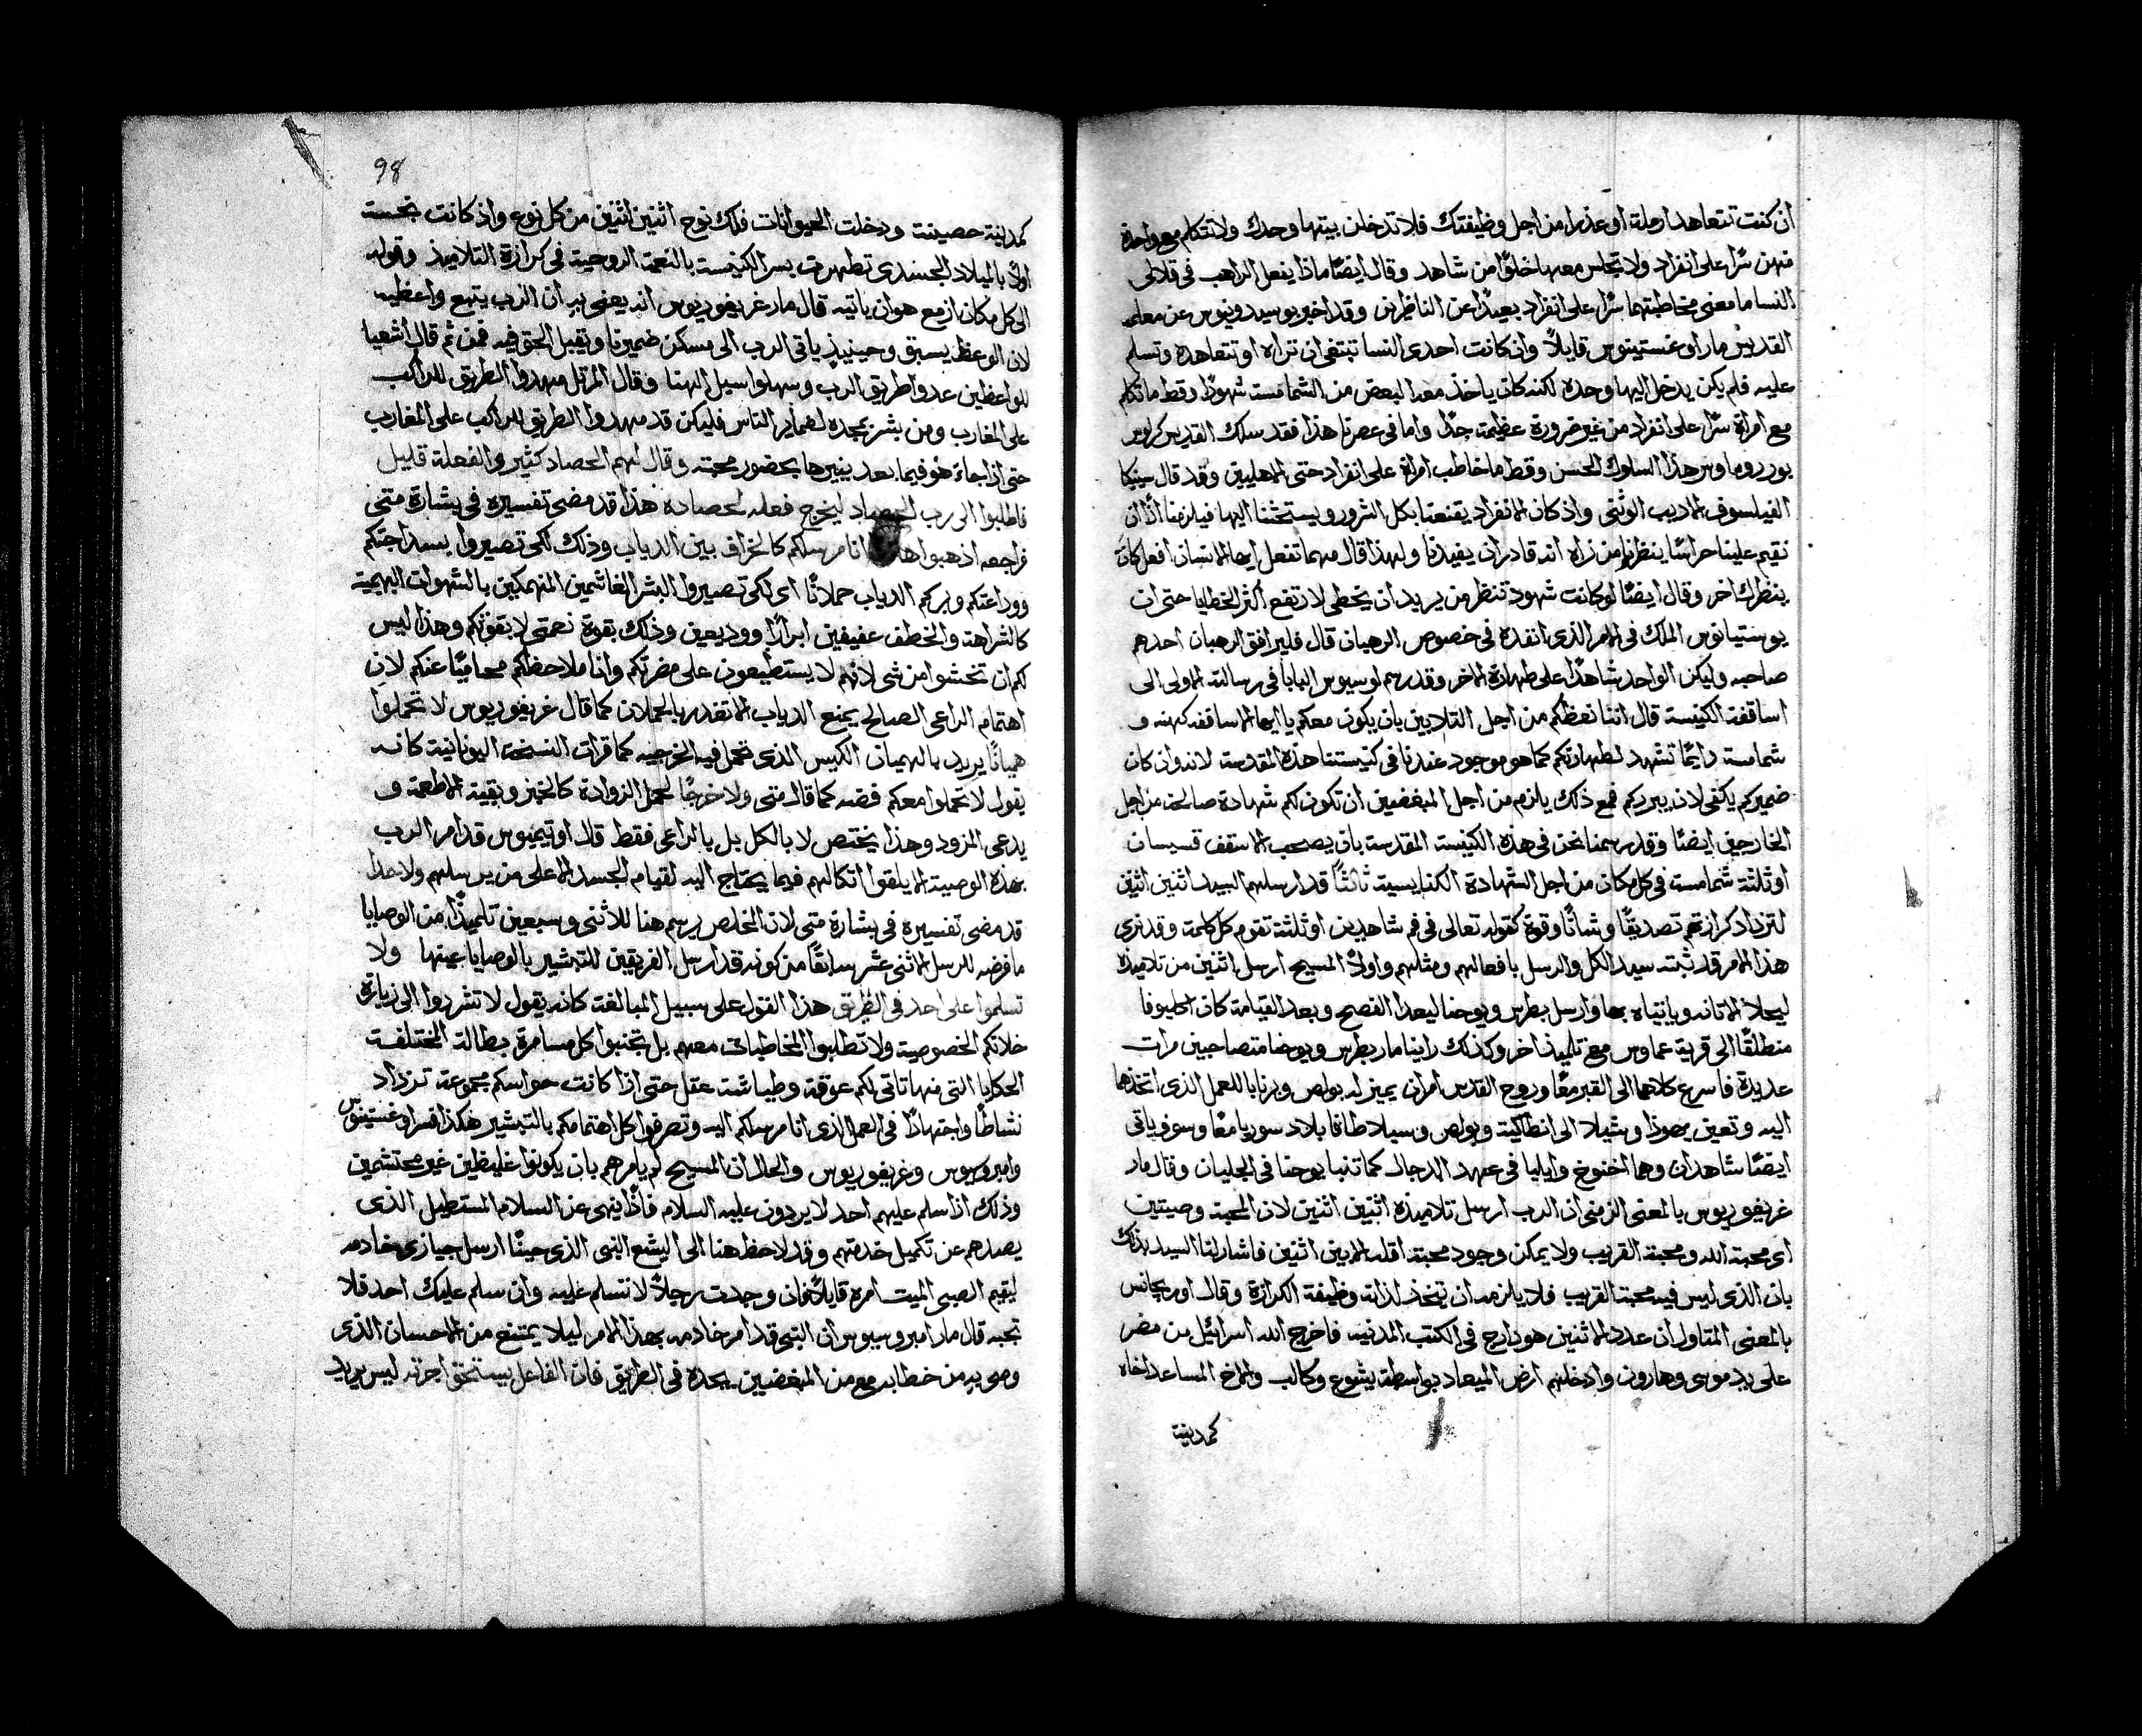 ان كنت تتعاهد ارملة او عذرا من اجل وظيفتك فلا تدخلن بيتها وحدك ولا تتكلم مع واحدة
منهن سرًا على انفراد ولا تجلس معها خلوًا من شاهد وقال ايضًا ماذا يفعل الراهب في قلالي
النسا ما معنى مخاطبتهما سرًا على انفراد بعيدًا عن الناظرين وقد اخبر بوسيدونيوس عن معلمه
القديس مار اوغستينوس قايلاً وان كانت احدى النسا تبتغي ان تراه او تتعاهده وتسلم
عليه فلم يكن يدخل اليها وحده لكنه كان ياخذ معه البعض من الشمامسة شهودًا وقط ما تكلم
مع امراة سرًا على انفراد من غير ضرورة عظيمة جدًا واما في عصرنا هذا فقد سلك القديس كرلوس
بوروماوس هذا السلوك الحسن وقط ما خاطب امراة على انفراد حتى الاهليين وقد قال سينيكا
الفيلسوف الاديب الوثني واذ كان الانفراد يقنعنا بكل الشرور ويستحثنا اليها فيلزمنا اذًا ان
نقيم علينا حراسًا ينظرنا من نراه انه قادر ان يفيدنا ولهذا قال مهما تفعل ايها الانسان افعل كان
ينظرك اخر وقال ايضًا لو كانت شهود تنظر من يريد ان يخطي لارتفع اكثر الخطايا حتى ان
يوستيانوس الملك في الامر الذي انفده في خصوص الرهبان قال فليرافق الرهبان احدهم
صاحبه وليكن الواحد شاهدًا على طهارة الاخر وقد رسم لوسيوس البابا في رسالته الاولى الى
اساقفة الكنيسة قال اننا نعظكم من اجل التلابين بان يكون معكم يا ايها الاساقفه كهنه و
شمامسة دايمًا تشهد لطهارتكم كما هو موجود عندنا في كنيستنا هذه المقدسة لانه وان كان
ضميركم يكفي لان يبرركم فمع ذلك يلزم من اجل المبغضين ان تكون لكم شهادة صالحة من اجل
الخارجين ايضًا وقد رسمنا نحن في هذه الكنيسة المقدسة بان يصحب الاسقف قسيسان
او ثلثة شمامسة في كل مكان من اجل الشهادة الكنايسية ثالثًا قد ارسلهم السيد اثنين اثنين
لتزداد كرازتهم تصديقًا وشانًا وقوة كقوله تعالى في فم شاهدين او ثلثة تقوم كل كلمة وقد نرى
هذا الامر قد ثبته سيد الكل والرسل بافعالهم ومثلهم واولاً المسيح ارسل اثنين من تلاميذه
ليحلا الاتانه وياتياه بها وارسل بطرس ويوحنا ليعدا الفصح وبعد القيامة كان اكليوفا
منطلقًا الى قرية عماوس مع تلميذ اخر وكذلك راينا مار بطرس ويوحنا متصاحبين مرات
عديدة فاسرع كلاهما الى القبر معًا وروح القدس امر ان يميز له بولص وبرنابا للعمل الذي اتخذهما
اليه وتعين يهوذا وشيلا الى انطاكية وبولص وسيلا طافا بلاد سوريا معًا وسوف ياتي
ايضًا شاهدان وهما اخنوخ وايليا في عهد الدجال كما تنبا يوحنا في الجليان وقال مار
غريغوريوس بالمعنى الرمزي ان الرب ارسل تلاميذه اثنين اثنين لان المحبة وصيتين
اي محبة الله ومحبة القريب ولا يمكن وجود محبة اقله الا بين اثنين فاشار لنا السيد بذلك
بان الذي ليس فيه محبة القريب فلا يلزمه ان يتخذ لذاته وظيفة الكرازة وقال اوريجانس
بالمعنى المتاول ان عدد الاثنين هو دارج في الكتب المدنيه فاخرج الله اسرائيل من مصر
على يد موسى وهارون وادخلهم ارض الميعاد بواسطة يشوع وكالب والاخ المساعد اخاه
كمدينة
98
كمدينة حصينة ودخلت الحيوانات فلك نوح اثنين اثنين من كل نوع واذ كانت نجسة
اولاً بالميلاد الجسدي تطهرت بسر الكنيسة بالنعمة الروحية في كرازة التلاميذ وقوله
الى كل مكان ازمع هو ان ياتيه قال مار غريغوريوس انه يعني به ان الرب يتبع واعظيه
لان الوعظ يسبق وحينيذٍ ياتي الرب الى مسكن ضميرنا ويقبل الحق فيه فمن ثم قال اشعيا
للواعظين عدوا طريق الرب وسهلوا سبيل الهنا وقال المرتل مهدوا الطريق للراكب
على المغارب ومن بشر بمجده لضماير الناس فليكن قد مهدوا الطريق للراكب على المغارب
حتى اذا جاء هو فيما بعد ينيرها بحضور محبته وقال لهم الحصاد كثير والفعلة قليل
فاطلبوا الى رب الحصاد ليخرج فعله لحصاده هذا قد مضى تفسيره في بشارة متى
فراجعه اذهبوا ها انا مرسلكم كالخراف بين الدياب وذلك لكي تصيروا بسذاجتكم
ووداعتكم وبركم الدياب حملانًا اي لكي تصيروا البشر الغاشمين المنهمكين بالشهوات البهيمية
كالشراهة والخطف عفيفين ابرارًا ووديعين وذلك بقوة نعمتي لا بقوتكم وهذا ليس
لكم ان تخشوا من شي لانهم لا يستطيعون على مضرتكم وانا ملاحظكم محاميًا عنكم لان
اهتمام الراعي الصالح يمنع الدياب الا تقدر بالحملان كما قال غريغوريوس لا تحملوا
هميانًا يريد بالهميان الكيس الذي تحمل فيه الخرجيه كما قرات النسخة اليونانية كانه
يقول لا تحملوا معكم فضه كما قال متى ولا خرجًا لحمل الزوادة كالخبز وبقية الاطعمة و
يدعى المزود وهذا يختص لا بالكل بل بالراعي فقط قال اوتيميوس قد امر الرب
بهذه الوصية الا يلقوا اتكالهم فيما يحتاج اليه لقيام الجسد الا على من يرسلهم ولا حذا
قد مضى تفسيره في بشارة متى لان المخلص يرسم هنا للاثنى وسبعين تلميذًا من الوصايا
ما فرضه للرسل الاثني عشر سابقًا من كونه قد ارسل الفريقين للتبشير بالوصايا عينها ولا
تسلموا على احد في الطريق هذا القول على سبيل المبالغة كانه يقول لا تشردوا الى زيارة
خلانكم الخصوصية ولا تطلبوا المخاطبات معهم بل تجنبوا كل مسامرة بطالة المختلفة
الحكايا التي منها تاتي لكم عوقة وطياشة عقل حتى اذا كانت حواسكم مجموعة تزداد
نشاطًا واجتهادًا في العمل الذي انا مرسلكم اليه وتصرفوا كل اهتمامكم بالتبشير هكذا فسر اوغستينوس
وامبروسيوس وغريغوريوس والحال ان المسيح لم يامرهم بان يكونوا غليظين غير محتشمين
وذلك اذا سلم عليهم احد لا يردون عليه السلام فاذًا ينهى عن السلام المستطيل الذي
يصدهم عن تكميل خدمتهم وقد لاحظ هنا الى اليشع النبي الذي حينًا ارسل جيازي خادمه
ليقيم الصبي الميت امره قايلاً فان وجدت رجلاً لا تسلم عليه وان سلم عليك احد فلا
تجبه قال مار امبروسيوس ان النبي قد امر خادمه بهذا الامر ليلا يمتنع من الاحسان الذي
وصى به من خطابه مع من المبغضين يجده في الطريق فان الفاعل يستحق اجرته ليس يريد